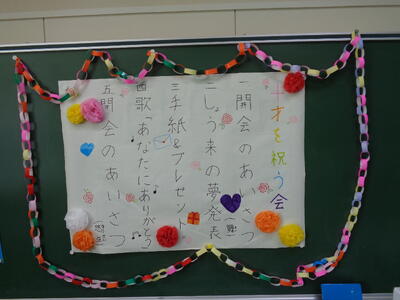 十才を祝う会
一 開会のあいさつ
二 しょう来の夢発表
三 手紙&プレゼント
四 歌「あなたにありがとう」
五 閉会のあいさつ